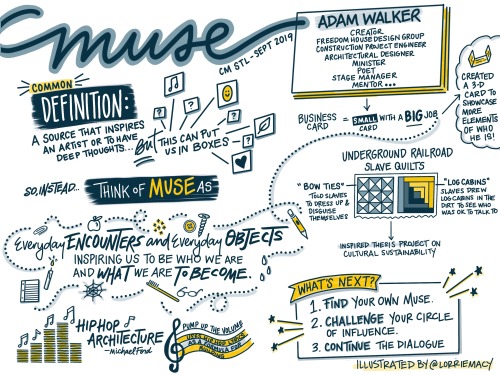 muse
CM STL-SEPT 2019
ADAM WALKER
CREATOR
FREEDOM HOUSE DESIGN GROUP
CONSTRUCTION PROJECT ENGINEER
ARCHITECTURAL DESIGNER
MINISTER
POET
STAGE MANAGER
MENTOR...
BUSINESS CARD = SMALL CARD WITH A BIG JOB
CREATED
A 3-D
CARD TO
SHOWCASE
MORE
ELEMENTS
OF WHO
HE IS!
COMMON
DEFINITION:
A SOURCE THAT INSPIRES
AN ARTIST OR TO HAVE
DEEP THOUGHTS...
But THIS CAN PUT
US IN BOXES
SO, INSTEAD...
THINK OF MUSE AS
Everyday ENCOUNTERS and Everyday OBJECTS
INSPIRING US TO BE WHO WE ARE
AND WHAT WE ARE TO BECOME.
UNDERGROUND RAILROAD
SLAVE QUILTS
"BOW TIES"
TOLD SLAVES
TO DRESS UP &
DISGUISE
THEMSELVES
"LOG CABINS"
SLAVES DREW
LOG CABINS IN THE
DIRT TO SEE WHO
WAS OK TO TALK TO
INSPIRED THESIS PROJECT ON
CULTURAL SUSTAINABILITY
HIP HOP
ARCHITECTURE
-Michael Ford
PUMP UP THE VOLUME
USES HIP HOP LYRICS
AS A FORMULA FOR
WHAT'S NEXT?
1. FIND YOUR OWN MUSE.
2. CHALLENGE YOUR CIRCLE
OF INFLUENCE.
3. CONTINUE THE DIALOGUE
ILLUSTRATED BY @LORRIEMACY